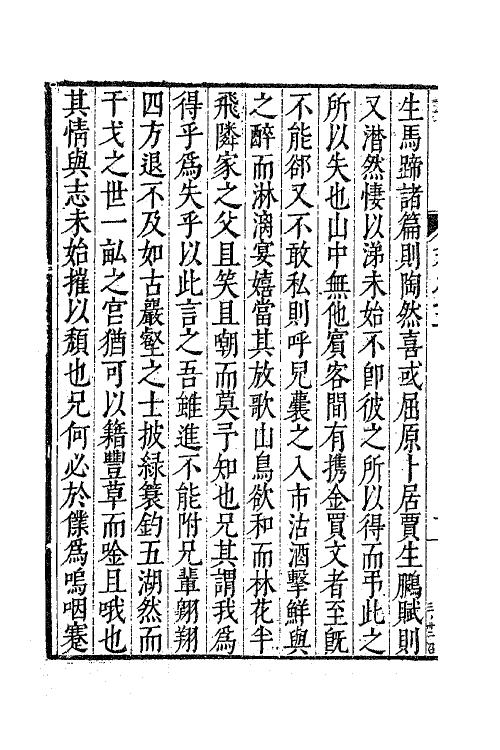 生馬蹄諸篇則陶然喜或屈原卜居賈生鵩賦則
又潸然悽以涕未始不卽彼之所以得而弔此之
所以失也山中無他賓客間有携金買文者至旣
不能郤又不敢私則呼兒囊之入市沽酒擊鮮與
之醉而淋漓宴嬉當其放歌山鳥欲和而林花半
飛隣家之父且笑且嘲而莫予知也兄其謂我為
得乎爲失乎以此言之吾雖進不能附兄輩翱翔
四方退不及如古嚴壑之士披緑簑釣五湖然而
干戈之世一畝之宫猶可以藉豐草而唫且哦也
其情與志未始摧以頽也兄何必於僕爲嗚咽蹇